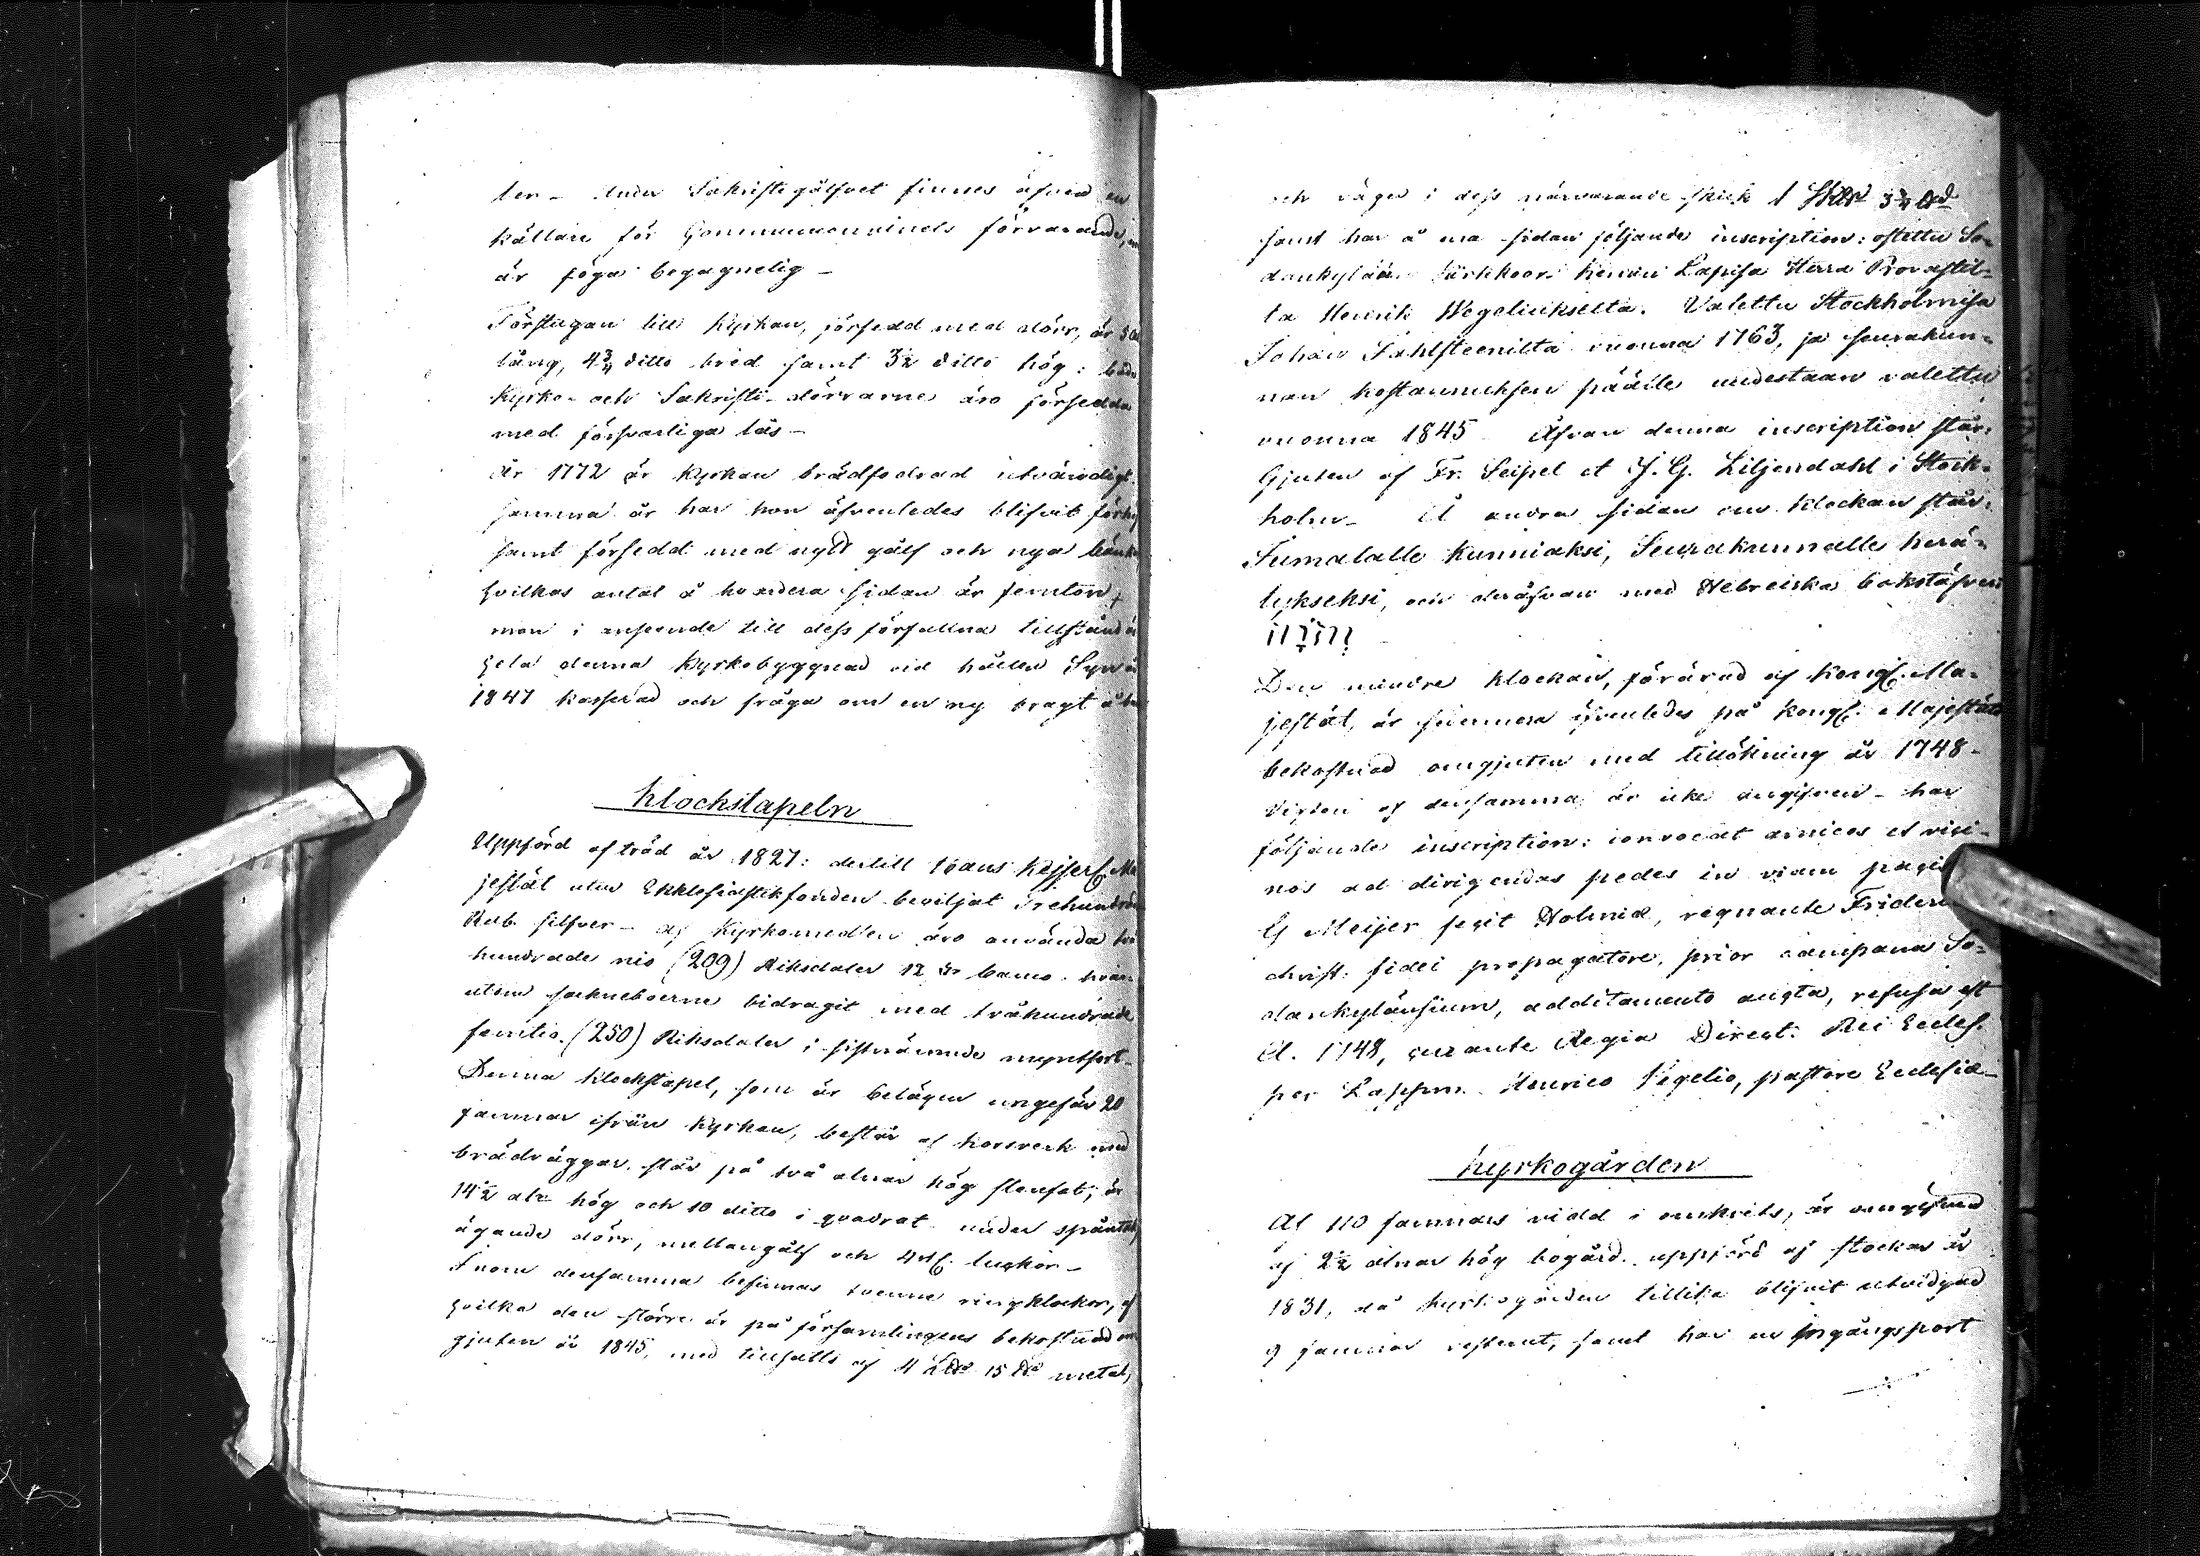 ter - Under Sakristigålfvet finnes äfven en
källare för Communionvinets förvarande,
är föga begagnelig -
Förstugan till Kyrkan, försedd med dörr, är 5
lång, 4¾ ditto bred samt 3½ ditto hög: båda
Kyrko- och Sakristi-dörrarne äro försedda
med försvarliga lås -
År 1772 är Kyrkan brädfodrad utvändigt.
samma år har hon äfvenledes blifvit
samt försedd med nytt gålf och nya bänkar
hvilkas antal å hvardera sidan är femton,
men i anseende till dess förfallna tillstånd är
hela denna Kyrkobyggnad vid hållen Syn år
1847 kasserad och fråga om en ny bragt å
Klockstapeln
Uppförd af träd år 1827: dertill Hans Kejserl. Ma
jestät utur Ekklesiastikfonden beviljat Trehundrade
Rub. silfver - af Kyrkomedlen äro använda två
hundrade nio (209) Riksdaler 12 sk banco. hvar-
utom sockneboerne bidragit med tvåhundrade
femtio (250) Riksdaler i sistnämnde myntsort -
Denna klockstapel, som är belägen ungefär 20
famnar ifrån Kyrkan, består af korsverk med
brädväggar, står på två alnar hög stenfot, är
14½ alr hög och 10 ditto i qvadrat under spåntak,
ägande dörr, mellangålf och 4 st. luckor -
Inom densamma befinnas tvenne ringklockor, af
hvilka den större är på församlingens bekostnad om
gjuten år 1845, med tillsatts af 4 L℔ 15 ℔ metal,
och väger i dess närvarande skick 1 Sk℔ 3¾ L℔
samt har å ena sidan följande inscription: ostettu So-
dankylään Kirkkoon Kemin Lapisa Herra Provastil-
ta Henrik Wegeliukselta. Valettu Stockholmisa
Johan Fahlsteenilta vuonna 1763, ja seurakun-
nan kostannuksen päälle uudestaan valettu
vuonna 1845 Äfvan denna inscription står:
Gjuten af Fr. Seipel et J. G. Liljendahl i Stock-
holm - Å andra sidan om klockan står:
Jumalalle Kunniaksi, Seurakunnalle herä-
tykseksi, och deräfvan med Hebreiska bokstäfver
יהוה
Den mindre klockan, förärad af Kongl. Ma-
jestät, är sedermera äfvenledes på Kongl. Majestäts
bekostnad omgjuten med tillökning år 1748 -
Vigten af densamma är icke angifven - har
följande inscription: convocat amicos et vici-
nos ad dirigendas pedes in viam pacis
G Meijer fecit Holmiæ, regnante Frideri
christ. fidei propagatore, prior campana So-
dankyläensium, additamento aucta, refusa est
A. 1748, curante Regia Direct: Rei Eccles.
per Lappm. Henrico Vegelio, pastore Ecclesiæ -
Kyrkogården
Af 110 famnars vidd i omkrets, är omgifven
af 2½ alnar hög bogård, uppförd af stockar år
1831, då kyrkogården tillika blifvit utvidgad
9 famnar vesterut, samt har en ingångsport